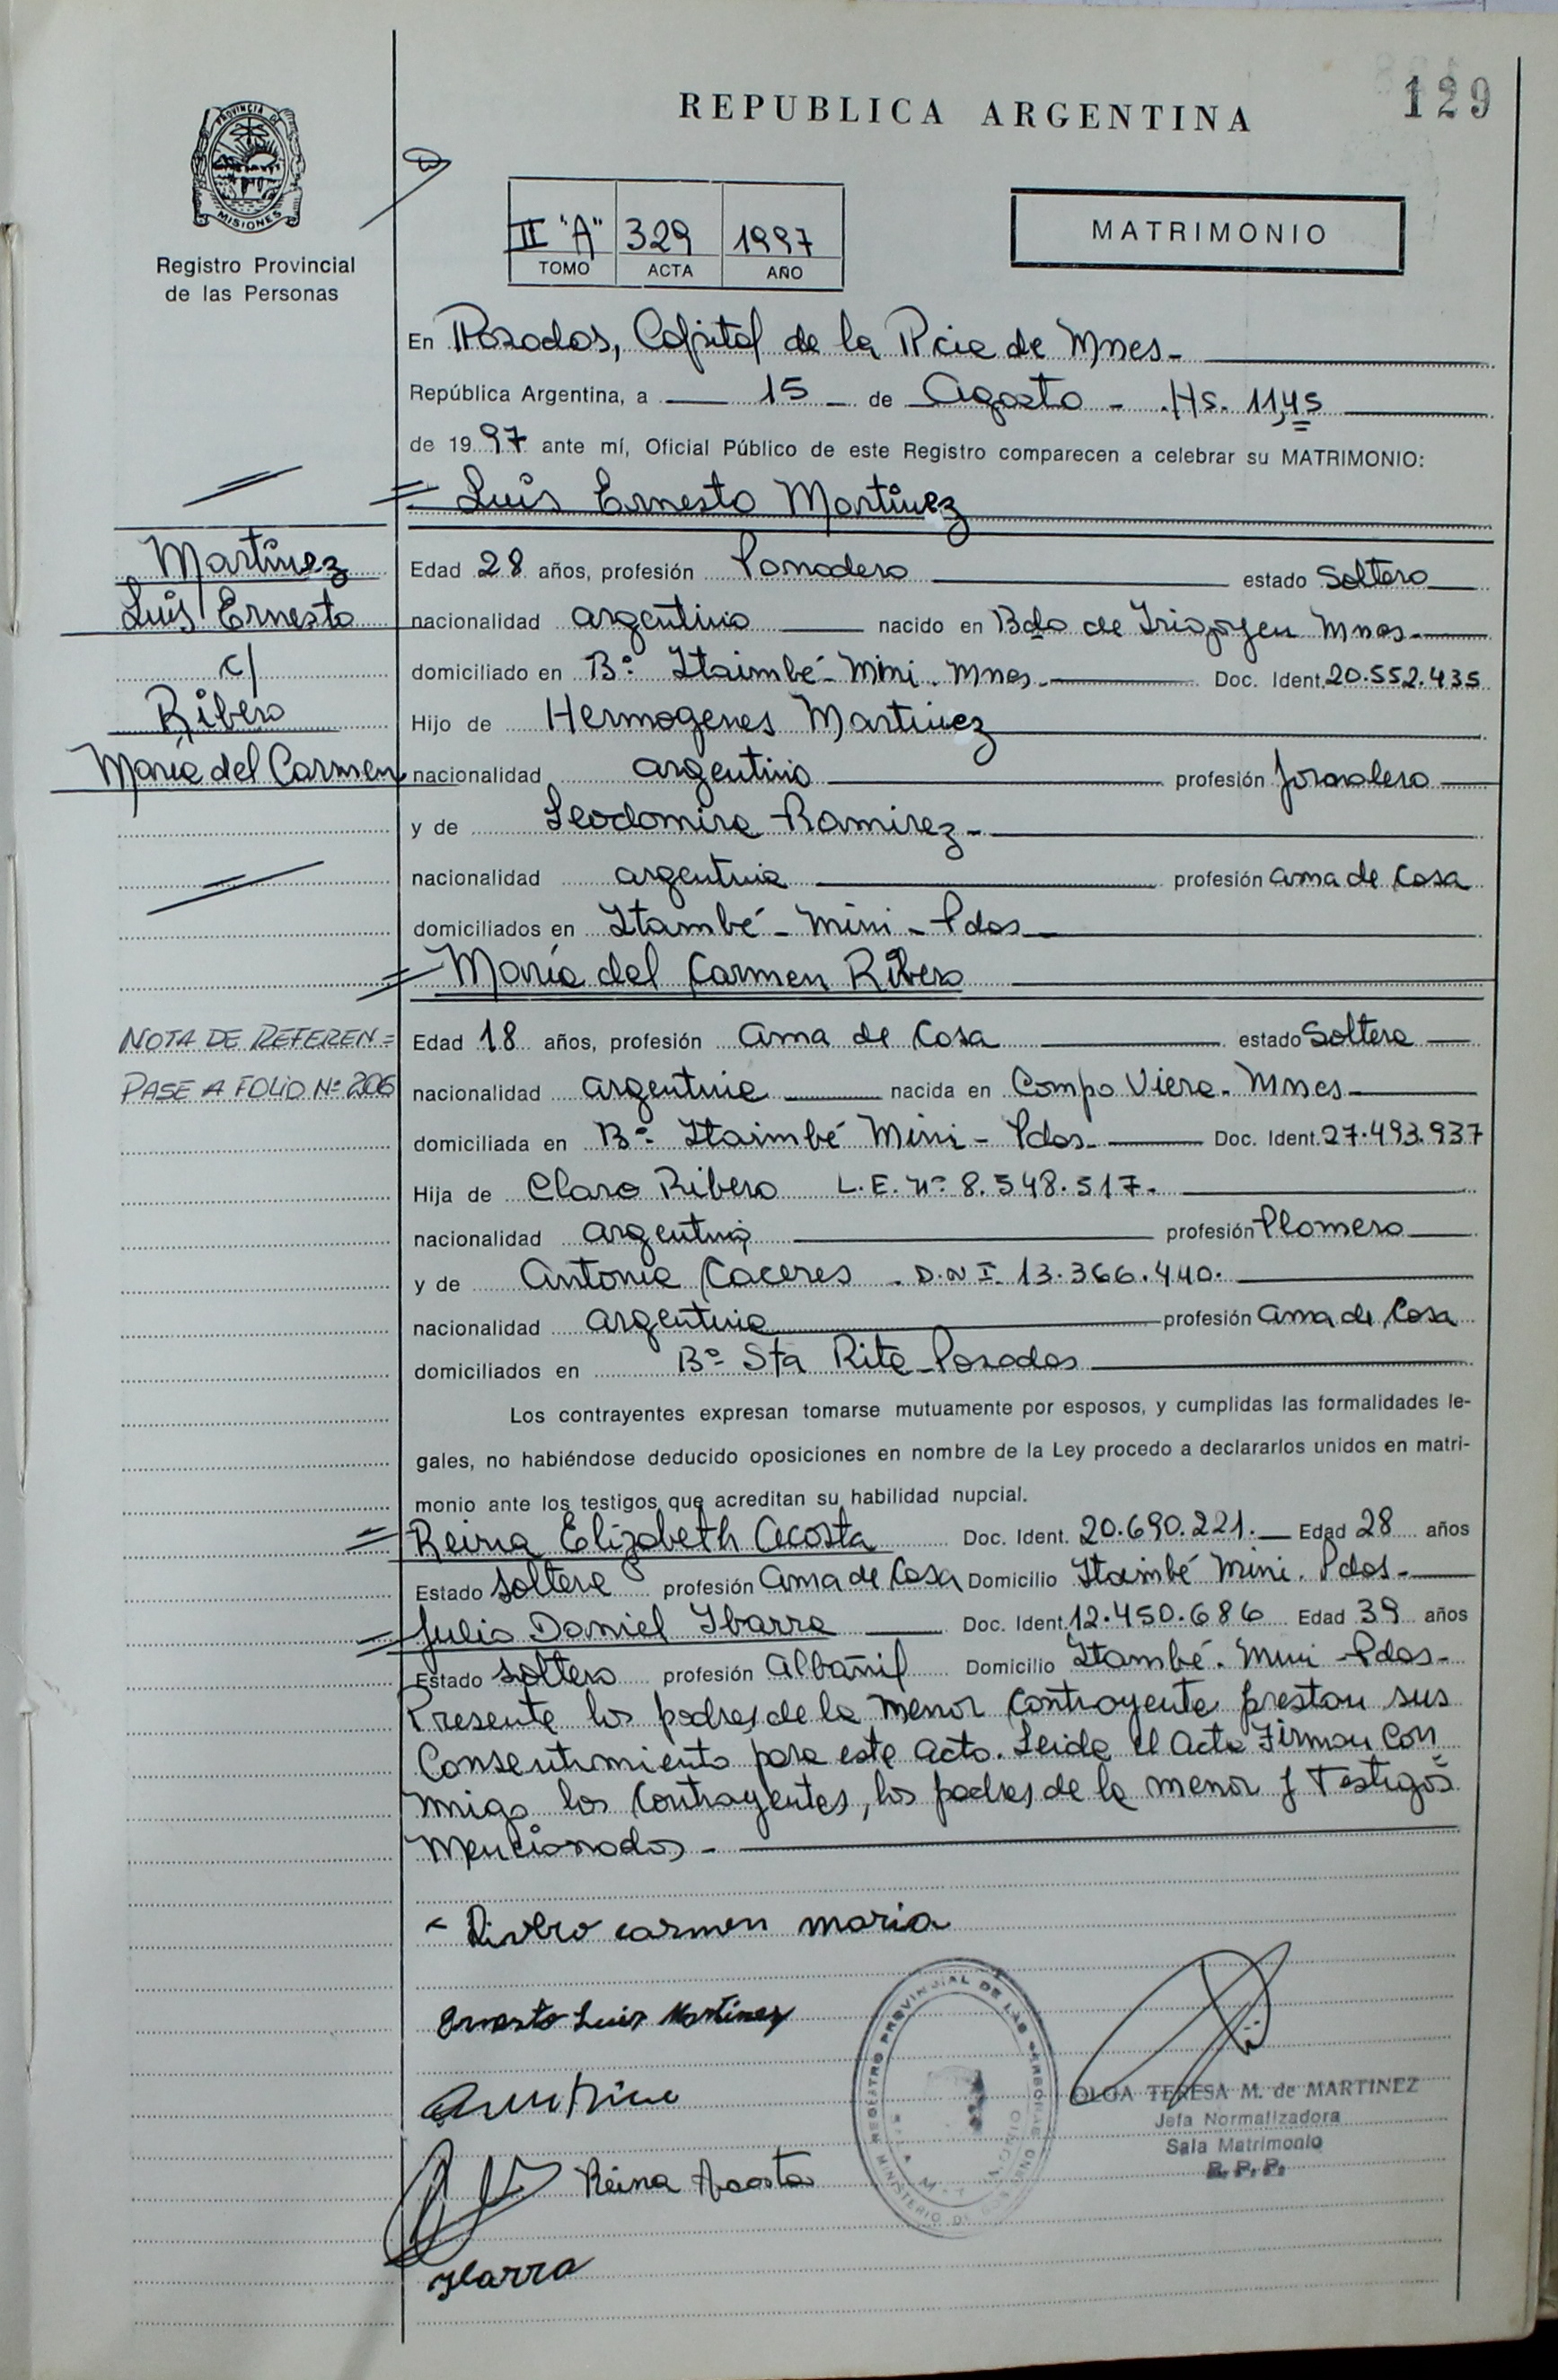 129
REPUBLICA ARGENTINA
PROVINCIA DE
MISIONES
Registro Provincial
de las Personas
II "A" 329 1997
TOMO ACTA AÑO
MATRIMONIO
En Posadas, Capital de la Pcia de Mnes-
República Argentina, a 15 de Agosto - Hs. 11,45
de 1997 ante mí, Oficial Público de este Registro comparecen a celebrar su MATRIMONIO:
Luis Ernesto Martinez
Martinez
Luis Ernesto
c/
Ribero
María del Carmen
Edad 28 años, profesión Panadero estado Soltero
nacionalidad argentino nacido en Bdo de Irigoyen Mnes-
domiciliado en B° Itaimbé-Mini. Mnes. Doc. Ident. 20.552.435
Hijo de Hermogenes Martinez
nacionalidad argentino profesión Jornalero
y de Leodomira Ramirez-
nacionalidad argentina profesión ama de Casa
domiciliados en Itambé-Mini-Pdas
María del Carmen Ribero
NOTA DE REFEREN=
PASE A FOLIO N° 206
Edad 18 años, profesión Ama de Casa estado Soltera
nacionalidad argentina nacida en Campo Viera-Mnes
domiciliada en B° Itaimbé Mini-Pdas- Doc. Ident. 27.493.937
Hija de Claro Ribero L.E. n° 8.548.517.
nacionalidad argentino profesión Plomero
y de Antonia Caceres. D.N I. 13.366.440.
nacionalidad argentina profesión ama de Casa
domiciliados en B° Sta Rita-Posadas
Los contrayentes expresan tomarse mutuamente por esposos, y cumplidas las formalidades le-
gales, no habiéndose deducido oposiciones en nombre de la Ley procedo a declararlos unidos en matri-
monio ante los testigos que acreditan su habilidad nupcial.
Reina Elizabeth Acosta Doc. Ident. 20.690.221. Edad 28 años
Estado Soltera profesión Ama de Casa Domicilio Itaimbé Mini. Pdas-
Julio Daniel Ibarra Doc. Ident. 12.450.686 Edad 39 años
Estado Soltero profesión Albañil Domicilio Itambé. Mini-Pdas-
Presente los padres de la menor Contrayente prestan sus
Consentimiento para este acto. Leida el Acta Firman Con
migo los Contrayentes, los padres de la menor y Testigos
Mencionados-
Rivero carmen maria
Ernesto Luis Martinez
Reina Acosta
Ibarra
REGISTRO PROVINCIAL DE LAS PERSONAS
MINISTERIO DE GOBIERNO
OLGA TERESA M. de MARTINEZ
Jefa Normalizadora
Sala Matrimonio
R. P. P.